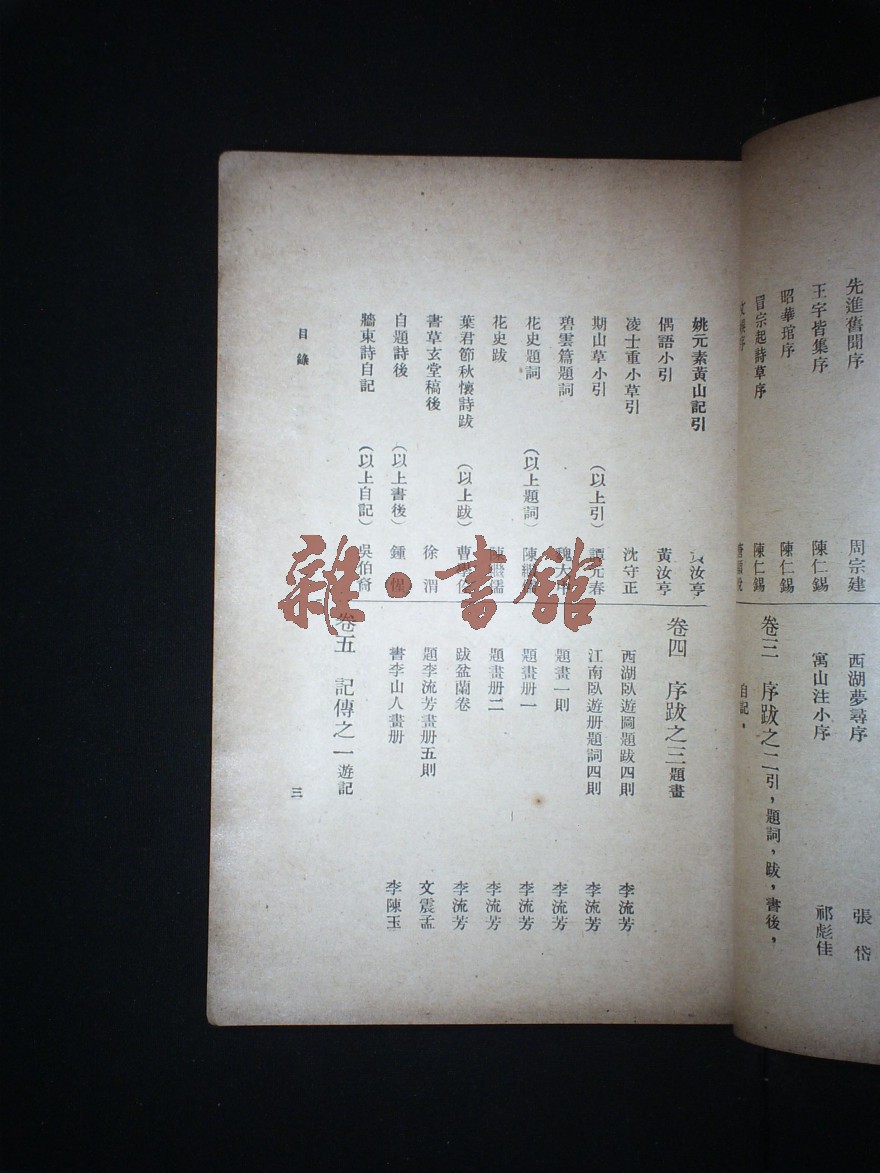 先進舊聞序 周宗建
王宇皆集序 陳仁錫
昭華琯序 陳仁錫
冒宗起詩草序 陳仁錫
西湖夢尋序 張岱
寓山注小序 祁彪佳
卷三 序跋之二 引，題詞，跋，書後，
自記。
姚元素黃山記引 黃汝亨
偶語小引 黃汝亨
凌士重小草引 沈守正
期山草小引 （以上引） 譚元春
碧雲篇題詞
花史題詞 （以上題詞） 陳繼儒
花史跋 陳繼儒
葉君節秋懷詩跋 （以上跋）
書草玄堂稿後 徐渭
自題詩後 （以上書後） 鍾惺
牆東詩自記 （以上自記） 吳伯裔
卷四 序跋之三 題畫
西湖臥遊圖題跋四則 李流芳
江南臥遊册題詞四則 李流芳
題畫一則 李流芳
題畫册一 李流芳
題畫册二 李流芳
跋盆蘭卷 李流芳
題李流芳畫册五則 文震孟
書李山人畫册 李陳玉
卷五 記傳之一 遊記
目錄
三
雜·書館